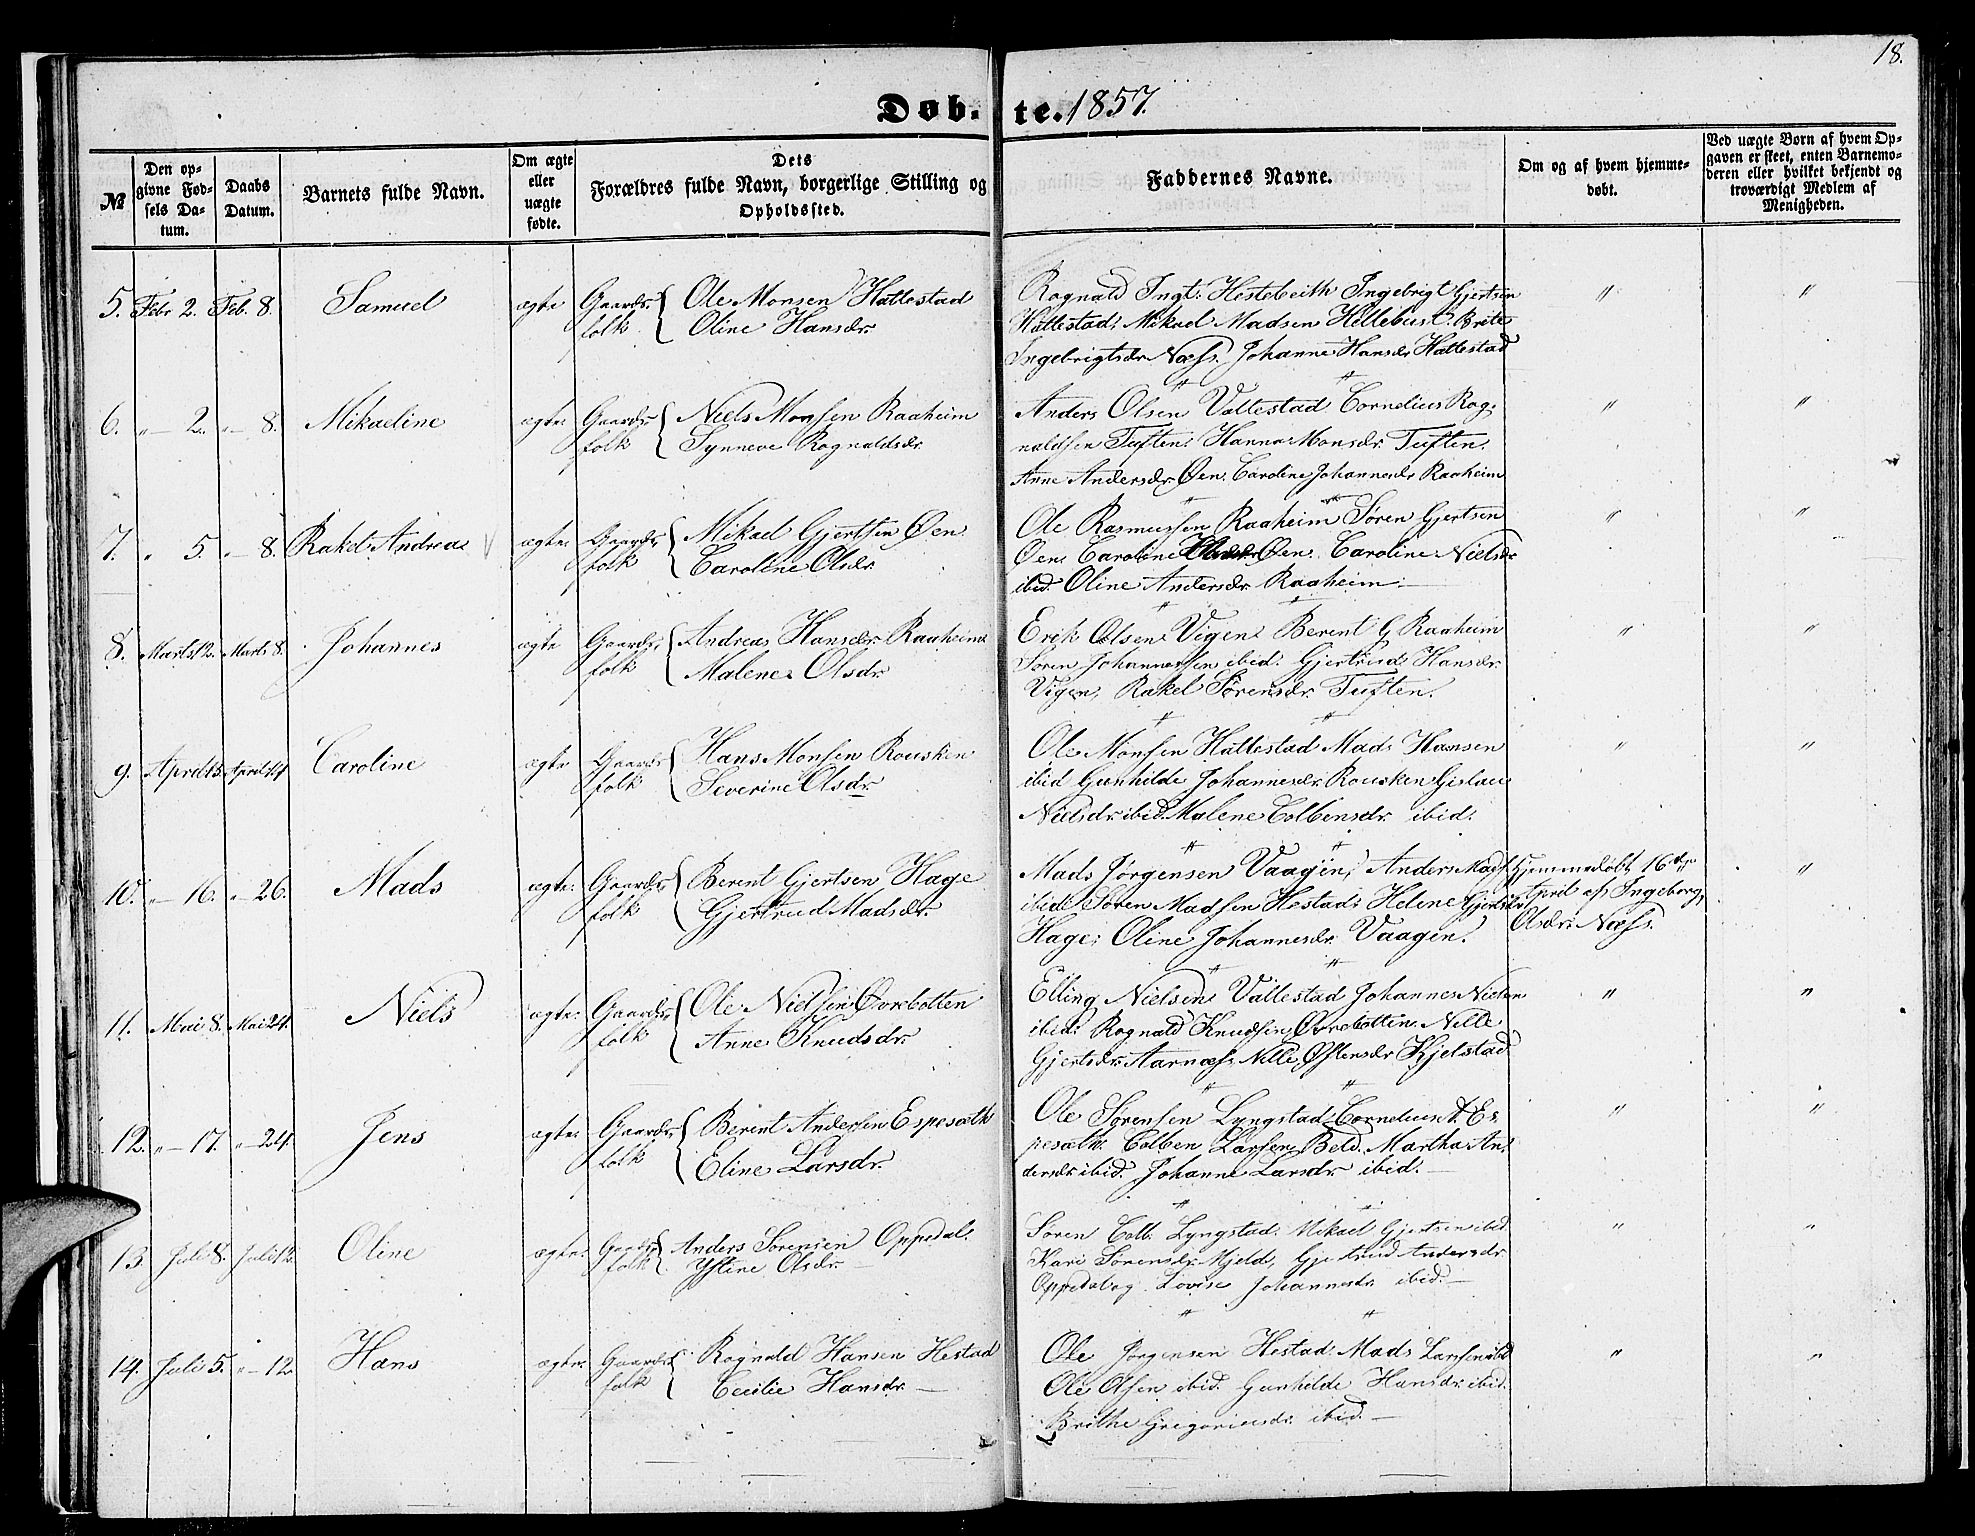 18.
Døb- te. 1857.
№
Den op-
givne Fød-
sels Da-
tum.
Daabs
Datum.
Barnets fulde Navn.
Om ægte
eller
uægte
fødte.
Dets
Forældres fulde Navn, borgerlige Stilling og
Opholdssted.
Faddernes Navne.
Om og af hvem hjemme-
døbt.
Ved uægte Børn af hvem Op-
gaven er skeet, enten Barnemo-
deren eller hvilket bekjendt og
troværdigt Medlem af
Menigheden.
5. Febr 2. Feb. 8. Samuel ægte Gaards- folk { Ole Monsen Hattestad
Oline Hansdr.
Rognald Ingt. Ingebrigt Gjertsen " "
Hattestad; Mikael Madsen Hellebust. Brite
Ingebrigtsdr Næss. Johanne Hansdr Hattestad
6. " 2. " 8. Mikaeline ægte Gaards- folk { Niels Monsen Raaheim
Synneve Rognaldsdr.
Anders Olsen Vallestad Cornelius Rog- " "
naldsen Tuften. Hanna Monsdr. Tuften.
Anne Andersdr Øen. Caroline Johannesdr Raaheim
7. " 5. " 8. Rakel Andrea ægte Gaards- folk { Mikael Gjertsen Øen
Caroline Olsdr.
Ole Rasmussen Raaheim Søren Gjertsen " "
Øen. Caroline Øen. Caroline Nielsdr
ibid. Oline Andersdr. Raaheim.
8. Marts 2. Marts 8. Johannes ægte Gaards- folk { Andreas Hansdr. Raaheim
Malene Olsdr.
Erik Olsen Vigen. Berent G. Raaheim " "
Søren Johannessen ibid. Gjertrud Hansdr.
Vigen, Rakel Sørensdr. Tuften.
9. April 5. April 14 Caroline ægte Gaards- folk { Hans Monsen Rousken
Severine Olsdr.
Ole Monsen Hattestad Mads Hansen " "
ibid Gunhilde Johannesdr. Rousken
Nielsdr. ibid. Malene Colbensdr. ibid.
10. " 16. " 26. Mads ægte Gaards- folk { Berent Gjertsen Hage
Gjertrud Madsdr.
Mads Jørgensen Vaagen, Anders Hjemmedøbt 16de "
ibid Søren Madsen Hestad; Helene Gjertsdr. April af Ingeborg
Hage; Oline Johannesdr. Vaagen. Olsdr. Næss.
11. Mai 8. Mai 24. Niels ægte Gaards- folk { Ole Nielsen Øvrebotten
Anne Knudsdr.
Elling Nielsen Vallestad Johannes Nielsen " "
ibid. Rognald Knudsen Øvrebotten. Nille
Gjertsdr. Aarnæs. Nille Østensdr Kjelstad
12. " 17. " 24. Jens ægte Gaards- folk { Berent Andersen Espesæth
Eline Larsdr.
Ole Sørensen Lyngstad. Cornelius A Es- " "
pesæth. Colben Larsen Beld. Martha An-
dersdr. ibid. Johanne Larsdr. ibid.
13 Juli 8. Juli 12. Oline ægte Gaards- folk { Anders Sørensen Oppedal.
Ystine Olsdr.
Søren Colb. Lyngstad. Mikael Gjertsen ibid " "
Kari Sørensdr. Mjelde, Gjertrud Andersdr.
Oppedal og Lovise Johannesdr. ibid.
14. Juli 5. " 12. Hans ægte Gaards- folk { Rognald Hansen Hestad
Cecilie Hansdr.
Ole Jørgensen Hestad Mads Larsen ibid " "
Ole Olsen ibid. Gunhilde Hansdr. ibid.
Brithe Gregoriusdr. ibid.